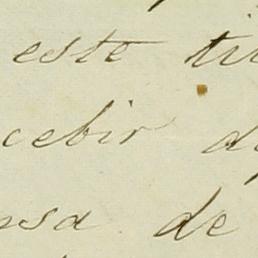 este ti
cebir d
nsa de